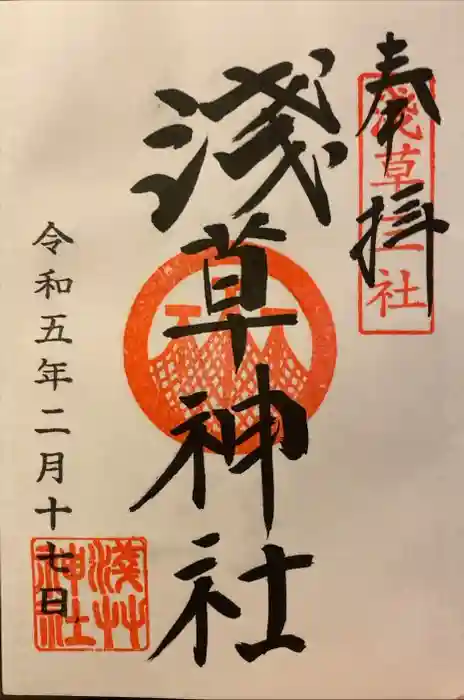 奉拝
浅草三社
淺草神社
令和五年二月十七日
淺草
神社